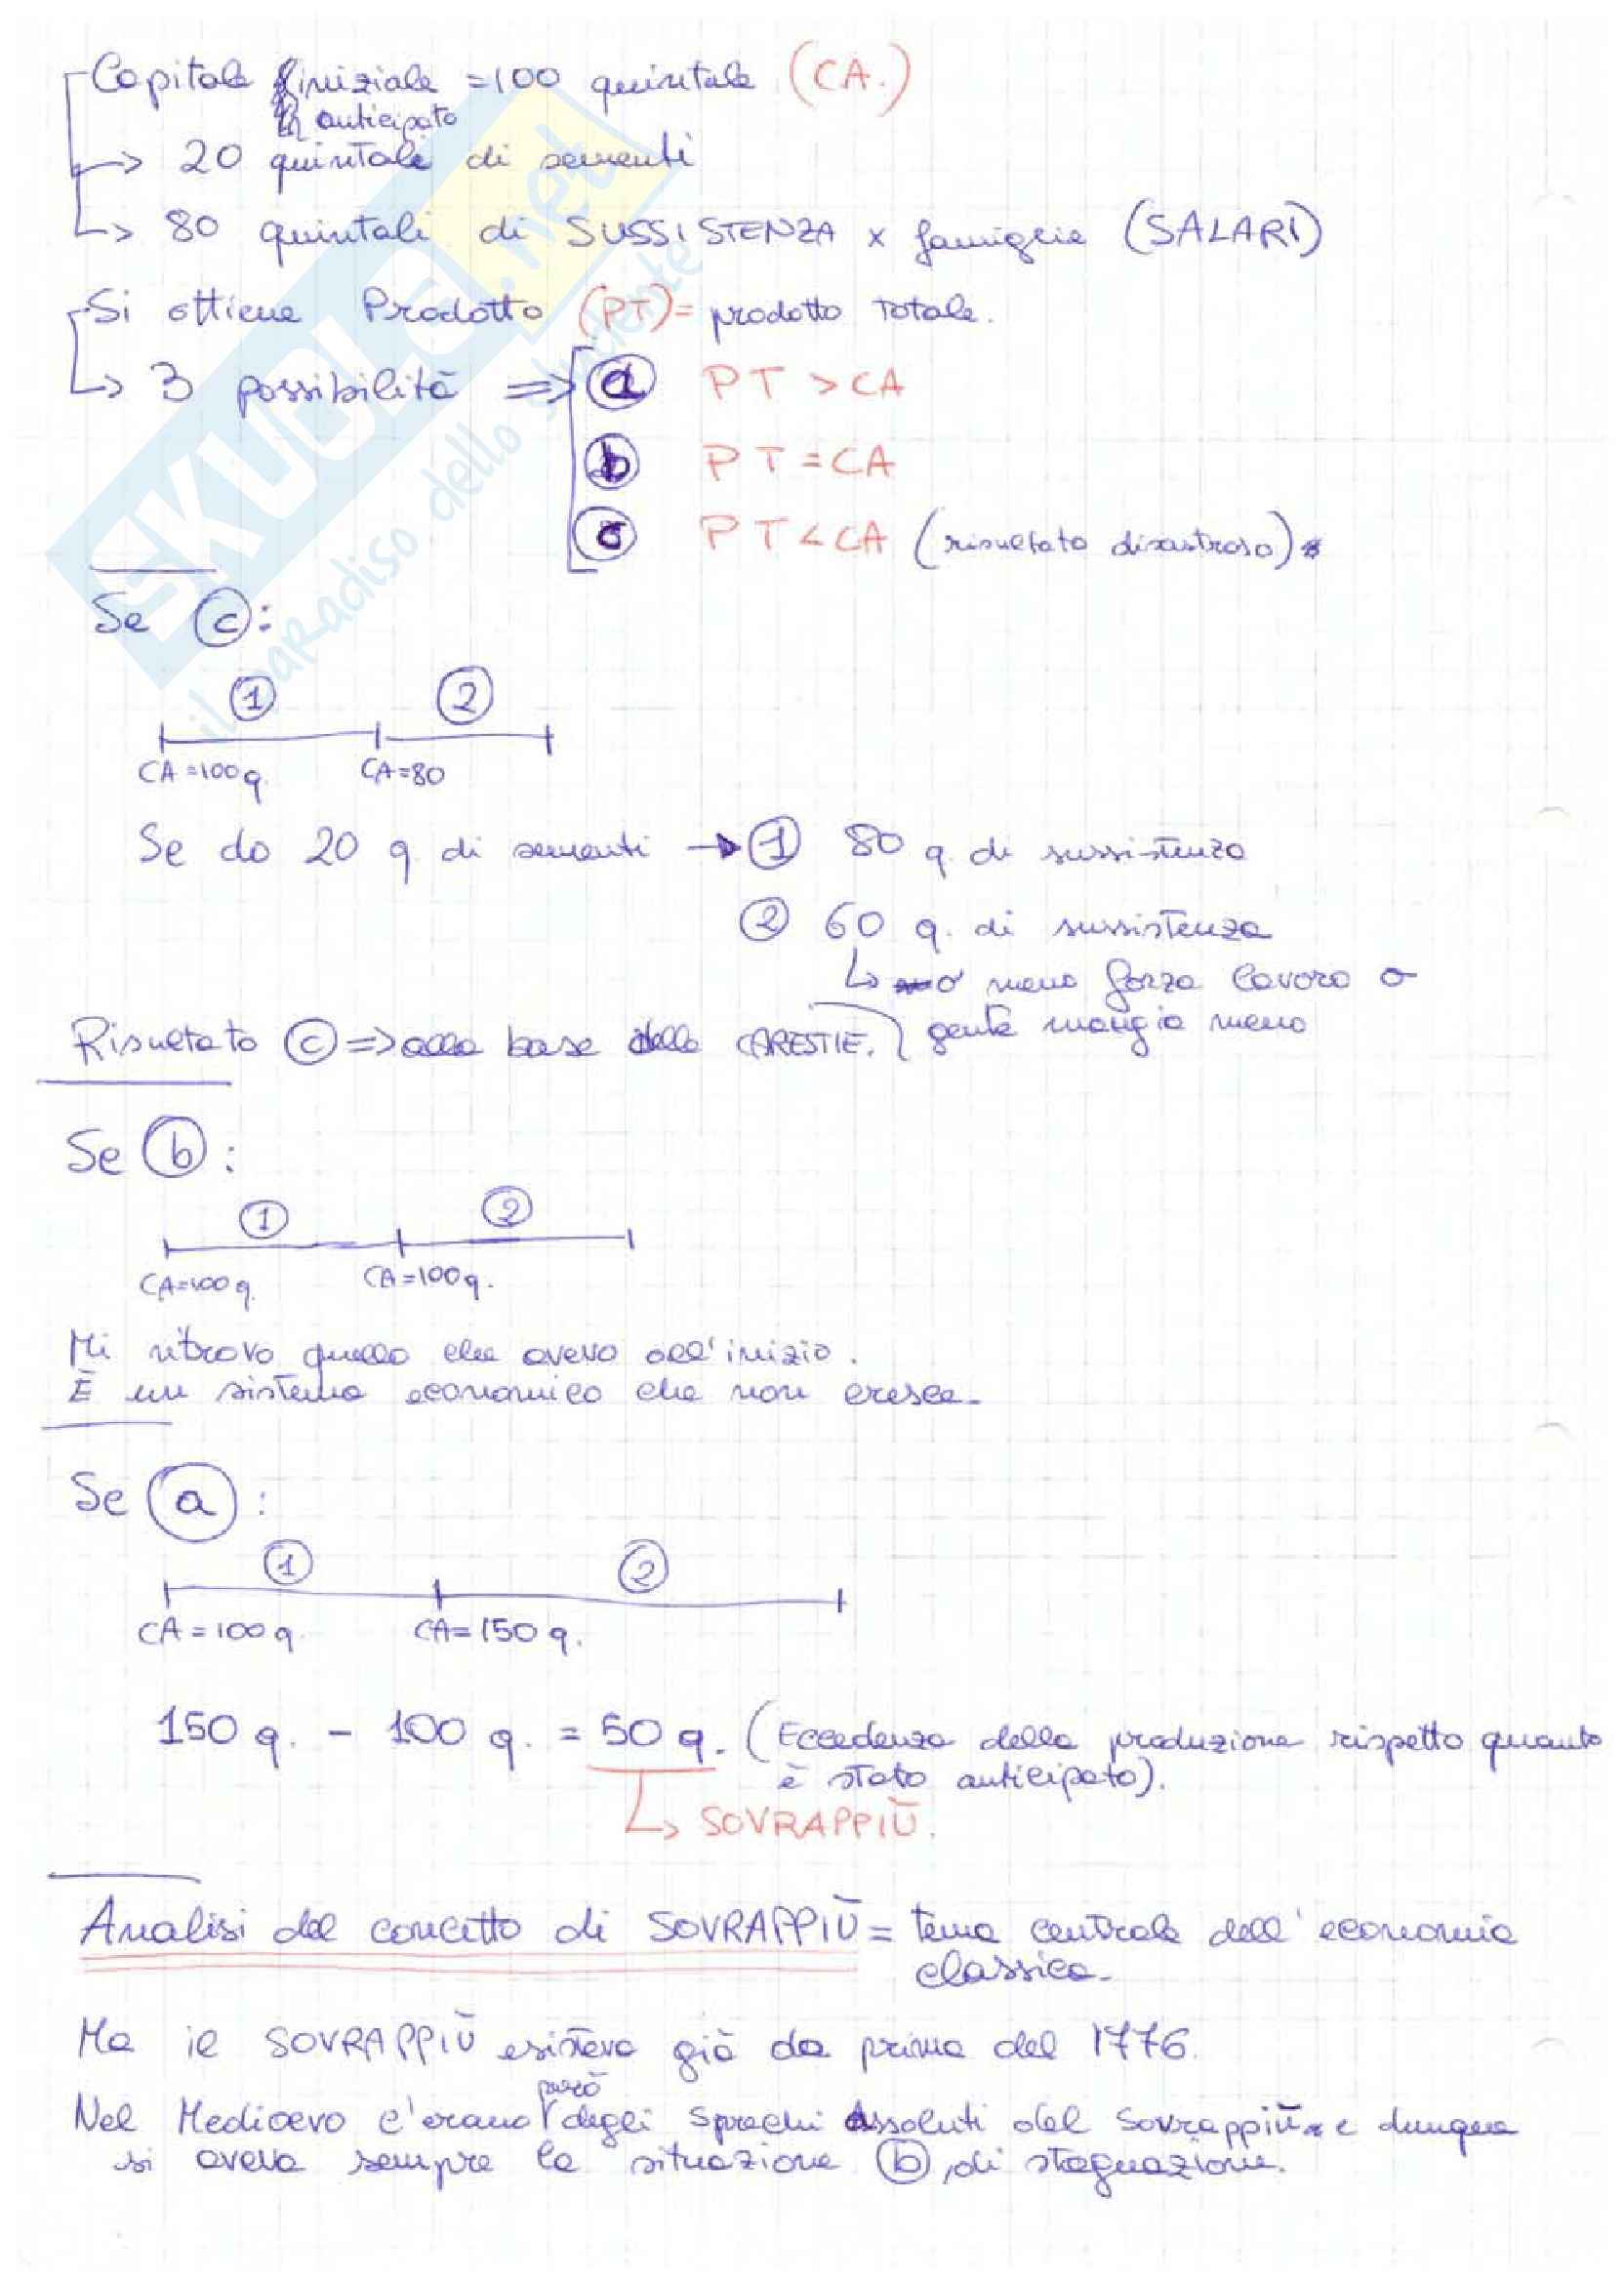 Capitale iniziale = 100 quintale (CA.)
anticipato
→ 20 quintali di sementi
→ 80 quintali di SUSSISTENZA x famiglie (SALARI)
Si ottiene Prodotto (PT) = prodotto totale.
→ 3 possibilità => a PT > CA
b PT = CA
c PT < CA (risultato disastroso)
Se c:
1 2
CA = 100 q. CA = 80
Se do 20 q di sementi → 1 80 q. di sussistenza
2 60 q. di sussistenza
↳ o meno forza lavoro o
gente mangia meno
Risultato c => alla base delle CARESTIE.
Se b:
1 2
CA = 100 q. CA = 100 q.
Mi ritrovo quello che avevo all'inizio.
È un sistema economico che non cresce.
Se a:
1 2
CA = 100 q. CA = 150 q.
150 q. - 100 q. = 50 q. (Eccedenza della produzione rispetto quanto
è stato anticipato).
↳ SOVRAPPIÙ.
Analisi del concetto di SOVRAPPIÙ = tema centrale dell'economia
classica.
Ma il SOVRAPPIÙ esisteva già da prima del 1776.
Nel Medioevo c'erano però degli sprechi assoluti del sovrappiù e dunque
si aveva sempre la situazione b, di stagnazione.
SKUOLA.net
il paradiso dello studente